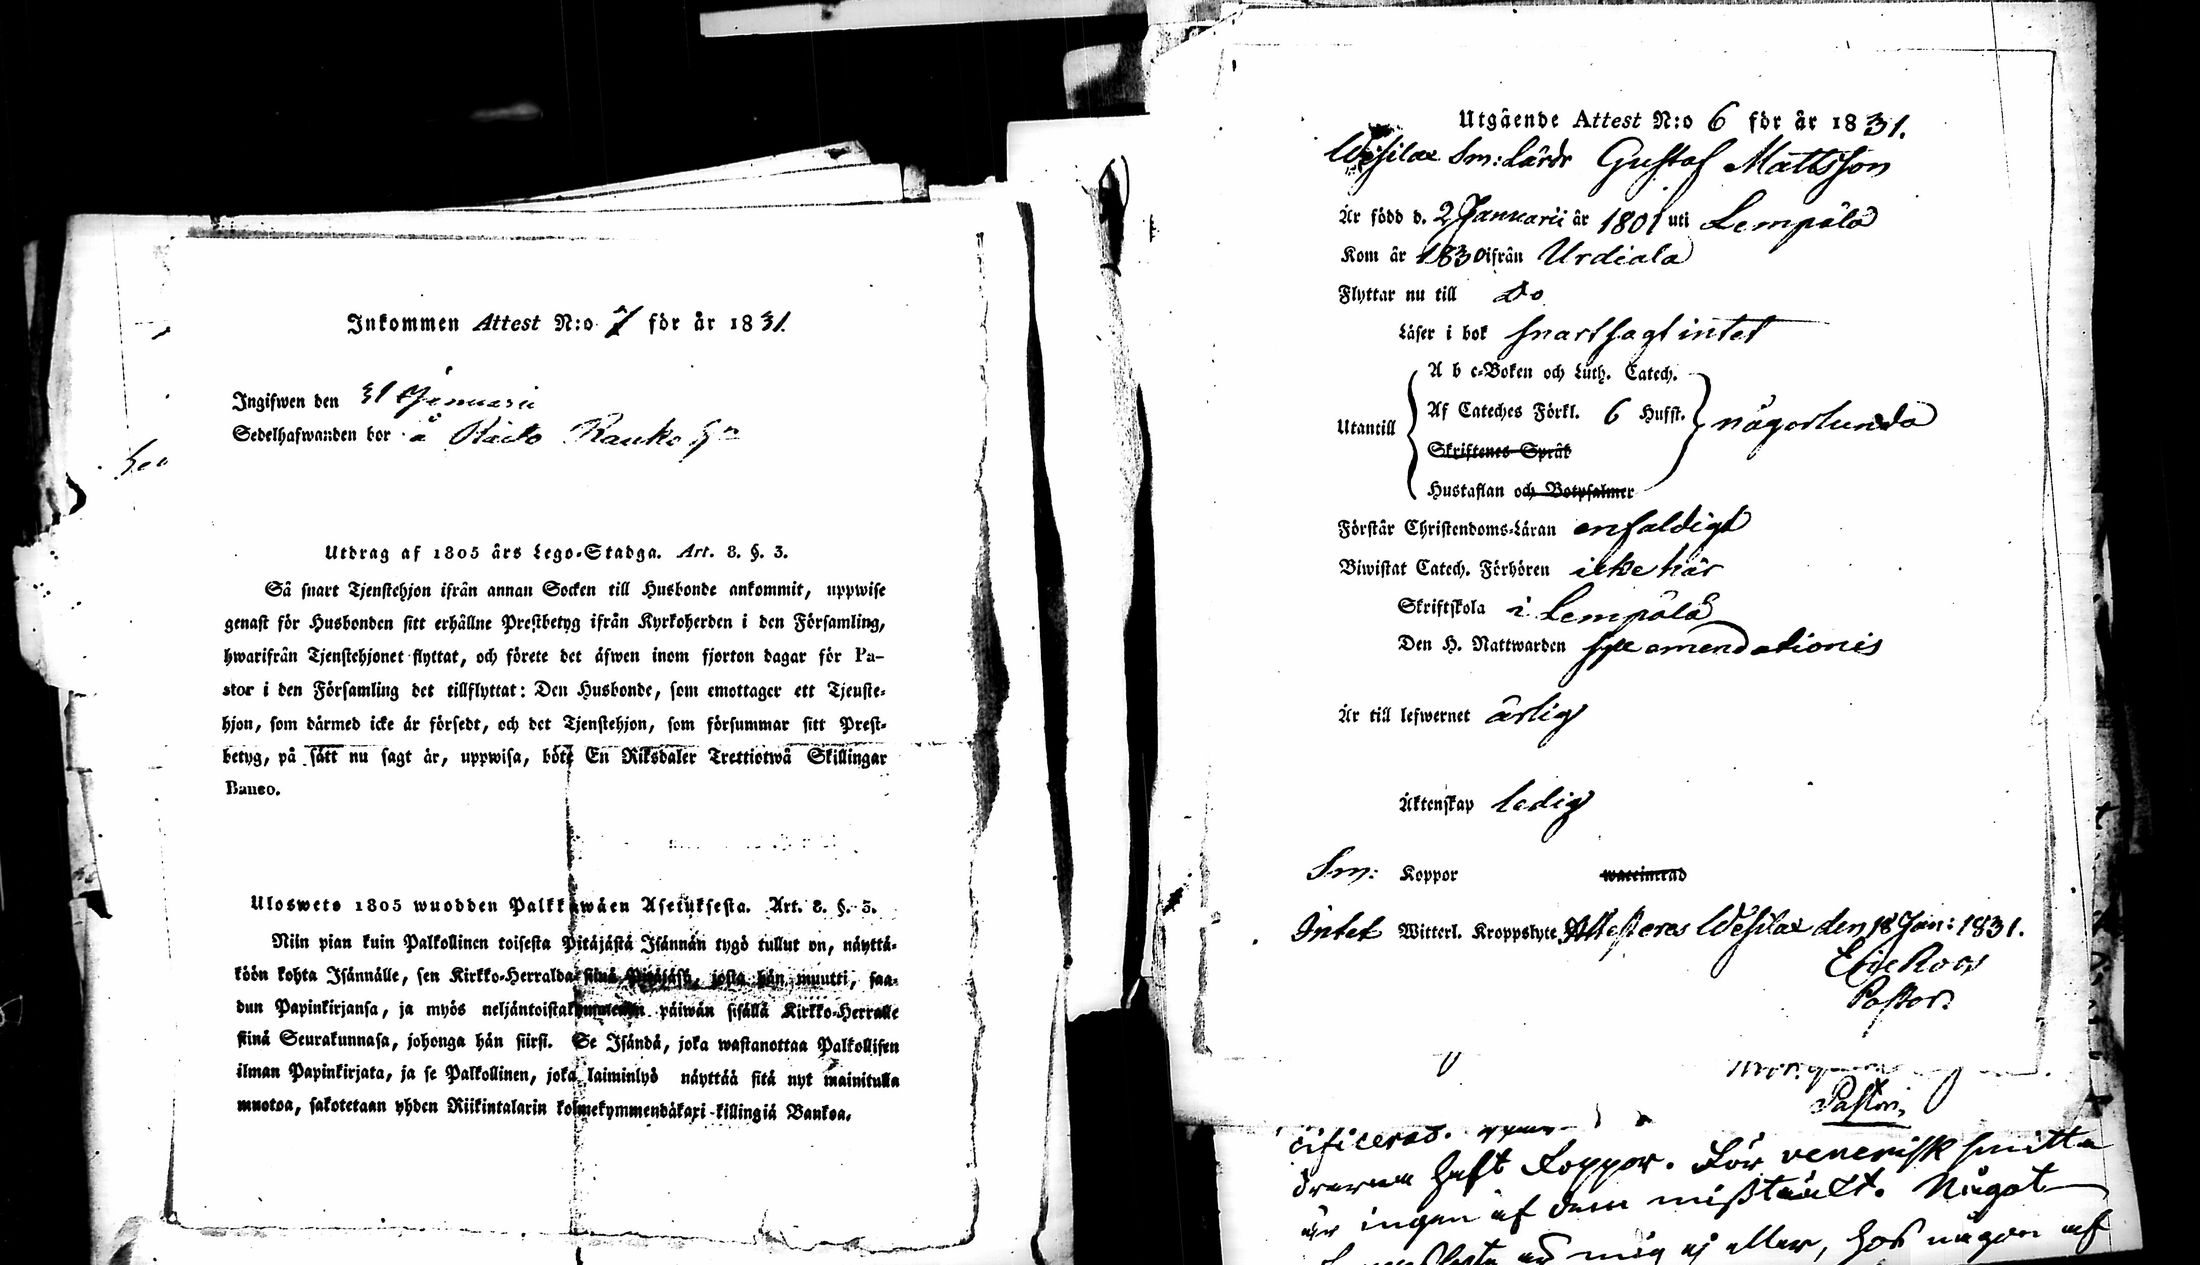 Inkommen Attest N:o 7 för år 1831.
Ingifwen den 31 Januarii
Sedelhafwanden bor å
Utdrag af 1805 års Lego-Stadga. Art. 8. §. 3.
Så snart Tjenstehjon ifrån annan Socken till Husbonde ankommit, uppwise
genast för Husbonden sitt erhållne Prestbetyg ifrån Kyrkoherden i den Församling,
hwarifrån Tjenstehjonet flyttat, och förete det äfwen inom fjorton dagar för Pa-
stor i den Församling det tillflyttat: Den Husbonde, som emottager ett Tjenste-
hjon, som därmed icke är försedt, och det Tjenstehjon, som försummar sitt Prest-
betyg, på sätt nu sagt är, uppwisa, böte En Riksdaler Trettiotwå Skillingar
Banco.
Ulosweto 1805 wuodden Palkkawäen Asetuksesta. Art. 8. §. 3.
Niin pian kuin Palkollinen toisesta Pitäjästä Isännän tygö tullut on, näyttä-
köön kohta Isännälle, sen Kirkko-Herralda siinä Pitäjäsä, josta hän muutti, saa-
dun Papinkirjansa, ja myös neljäntoistakymmenen päiwän sisällä Kirkko-Herralle
siinä Seurakunnasa, johonga hän siirsi. Se Isändä, joka wastanottaa Palkollisen
ilman Papinkirjata, ja se Palkollinen, joka laiminlyö näyttää sitä nyt mainitulla
muotoa, sakotetaan yhden Riikintalarin kolmekymmendäkaxi killingiä Bankoa.
Utgående Attest N:o 6 för år 1831.
Wesilax Sm: Lärdr Gustaf Mattsson
Är född d. 2 Januarii år 1801 uti Lempälä
Kom år 1830 ifrån Urdiala
Flyttar nu till Do
Läser i bok snart sagt intet
A b c-Boken och Luth. Catech.
Utantill Af Cateches Förkl. 6 Hufst. någorlunda
Skriftenes Språk
Hustaflan och Botpsalmer
Förstår Christendoms-Läran enfaldigt
Biwistat Catech. Förhören icke här
Skriftskola i Lempälä
Den H. Nattwarden spe emendationis
Är till lefwernet ärlig
Äktenskap ledig
Sm: Koppor waccinerad
Intet Witterl. Kroppslyte Attesteras Wesilax den 18 Jan: 1831.
Eric Roos
Pastor.
Pastor.
haft koppor. För venerisk smitta
är ingen af dem misstänkt. Något
mig ej eller, hos någon af